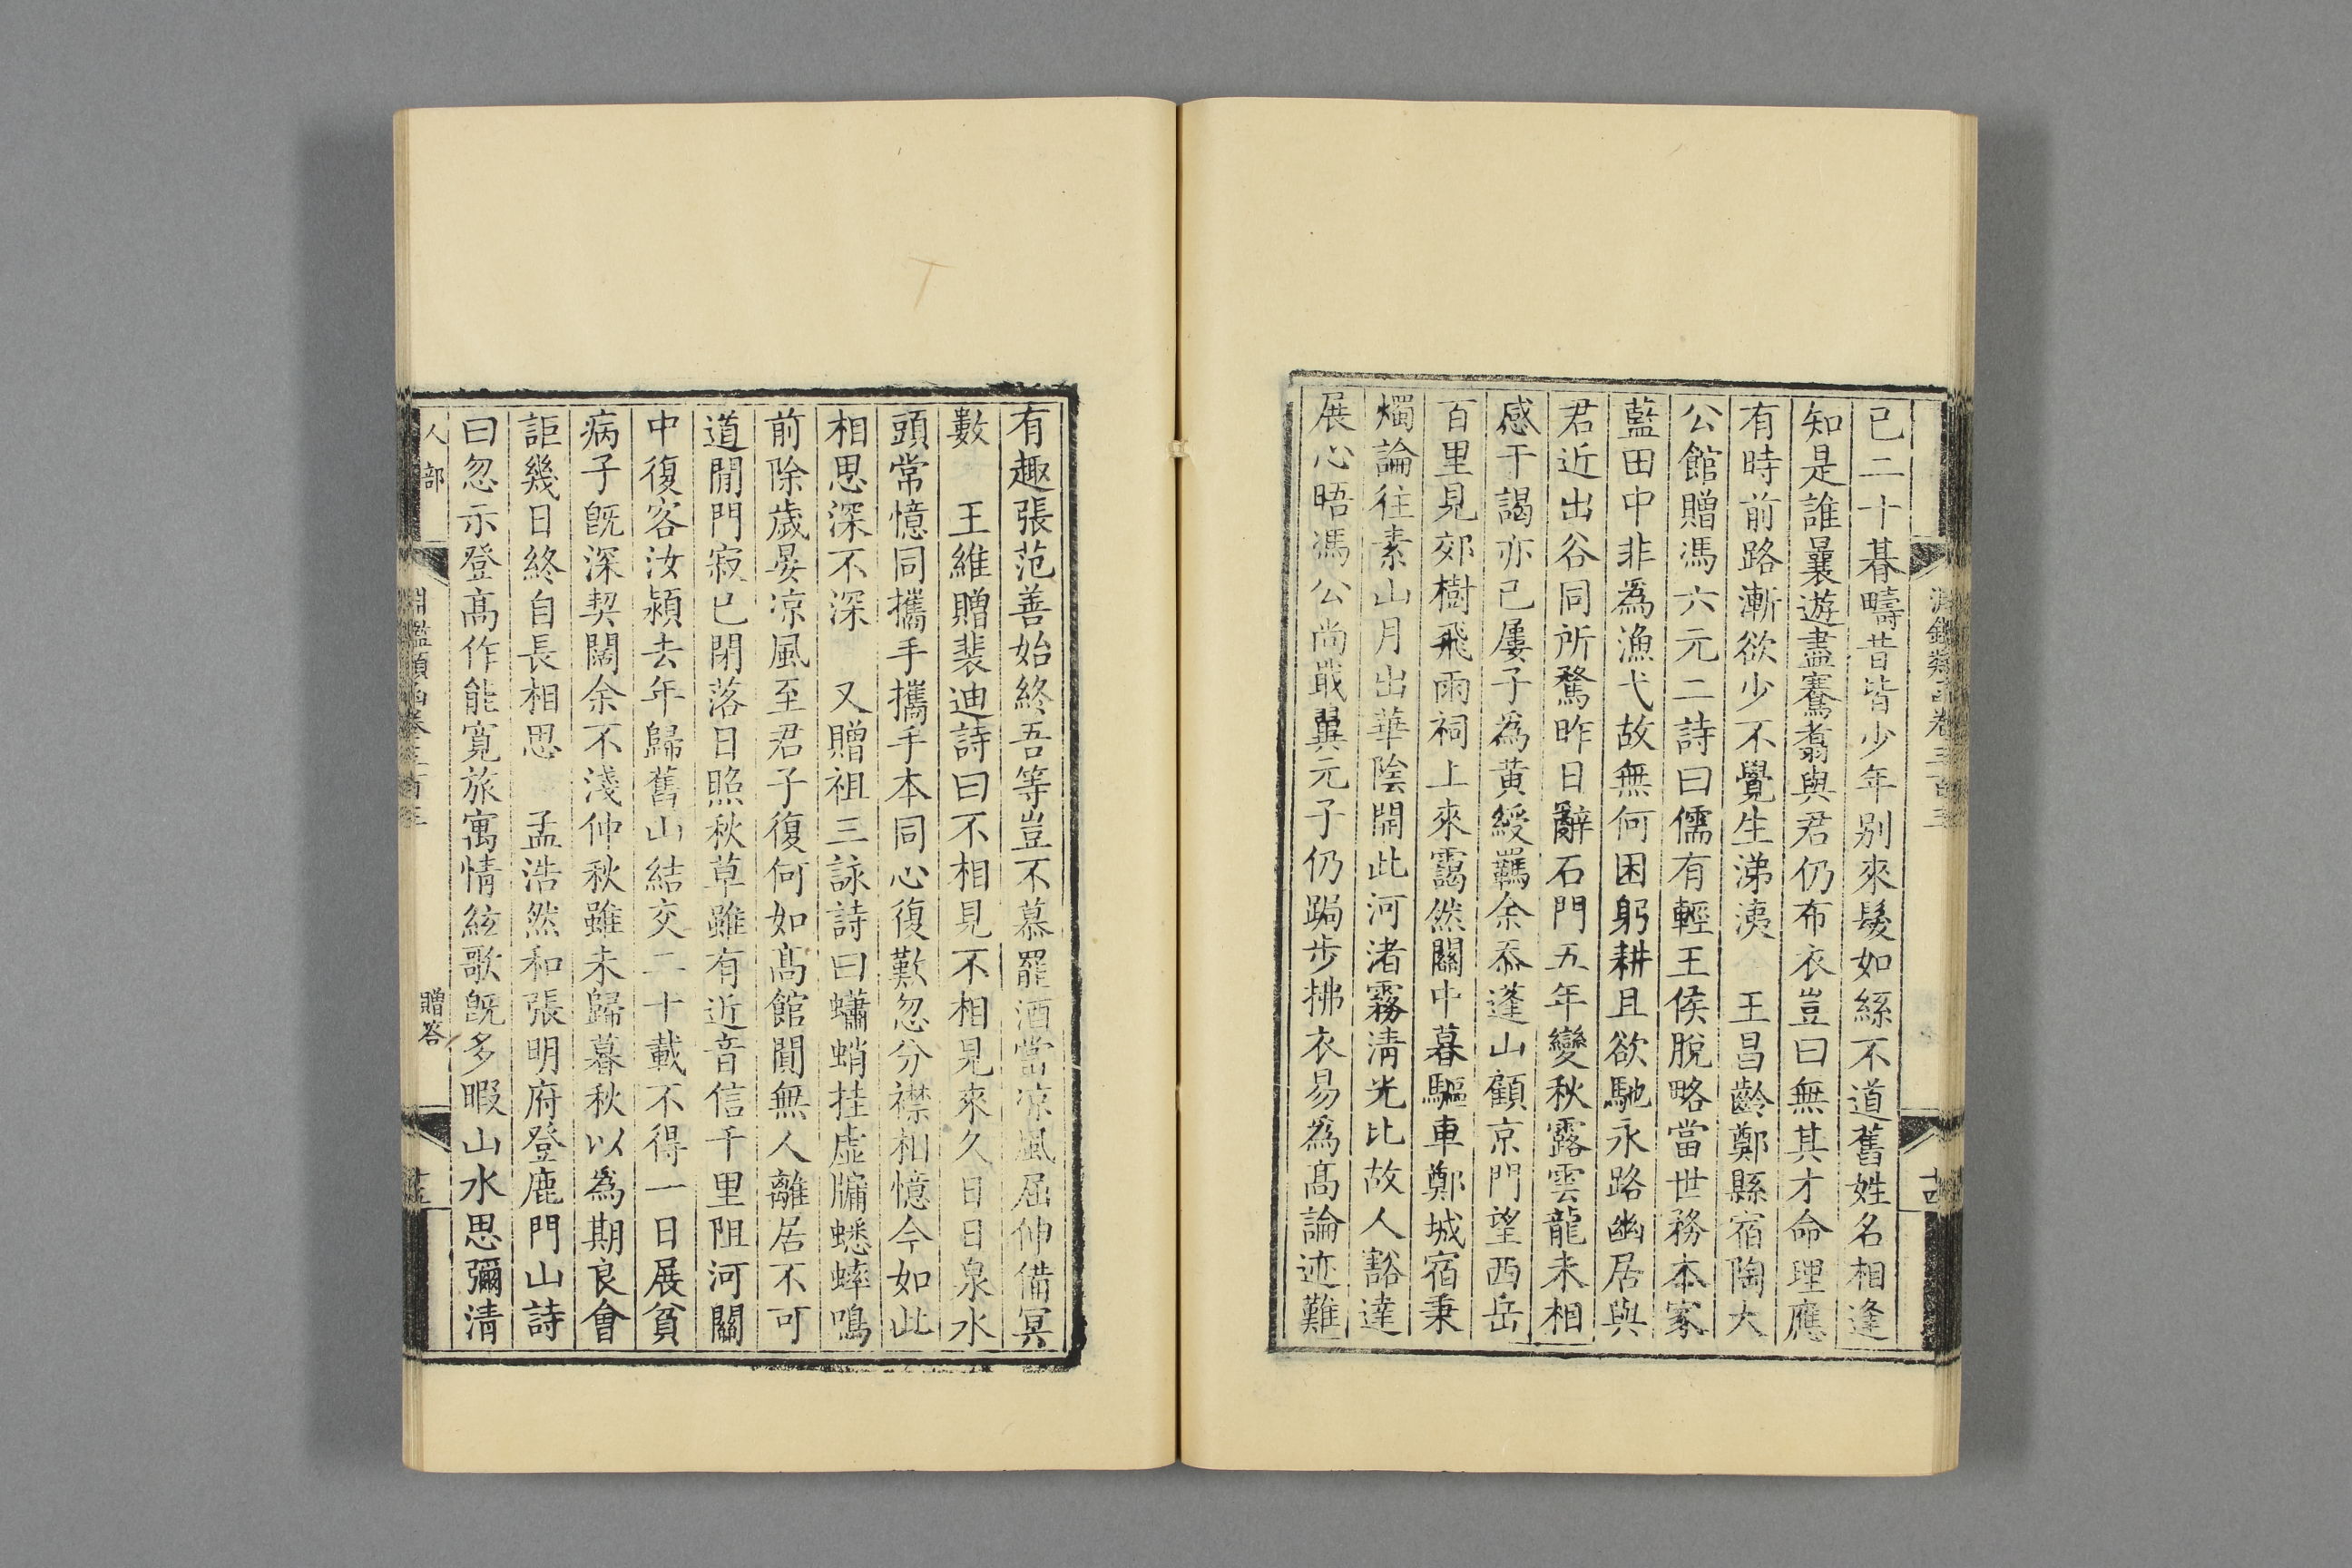 淵鑑類函卷三百三
十四
已二十朞疇昔皆少年別來髮如絲不道舊姓名相逢
知是誰曩遊盡騫翥與君仍布衣豈曰無其才命理應
有時前路漸欲少不覺生涕洟　王昌齡鄭縣宿陶大
公館贈馮六元二詩曰儒有輕王侯脫略當世務本家
藍田中非為漁弋故無何困躬耕且欲馳永路幽居與
君近出谷同所騖昨日辭石門五年變秋露雲龍未相
感干謁亦已屢子為黃綬羈余忝蓬山顧京門望西岳
百里見郊樹飛雨祠上來靄然關中暮驅車鄭城宿秉
燭論往素山月出華陰開此河渚霧清光比故人豁達
展心晤馮公尚戢翼元子仍跼步拂衣易為高論迹難
有趣張范善始終吾等豈不慕罷酒當涼風屈伸備冥
數　王維贈裴迪詩曰不相見不相見來久日日泉水
頭常憶同攜手攜手本同心復歎忽分襟相憶今如此
相思深不深　又贈祖三詠詩曰蠨蛸挂虛牖蟋蟀鳴
前除歲晏涼風至君子復何如高館閴無人離居不可
道閒門寂已閉落日照秋草雖有近音信千里阻河關
中復客汝潁去年歸舊山結交二十載不得一日展貧
病子既深契闊余不淺仲秋雖未歸暮秋以為期良會
詎幾日終自長相思　孟浩然和張明府登鹿門山詩
曰忽示登高作能寬旅寓情絃歌既多暇山水思彌清
人部
淵鑑類函卷三百三
贈答
十五